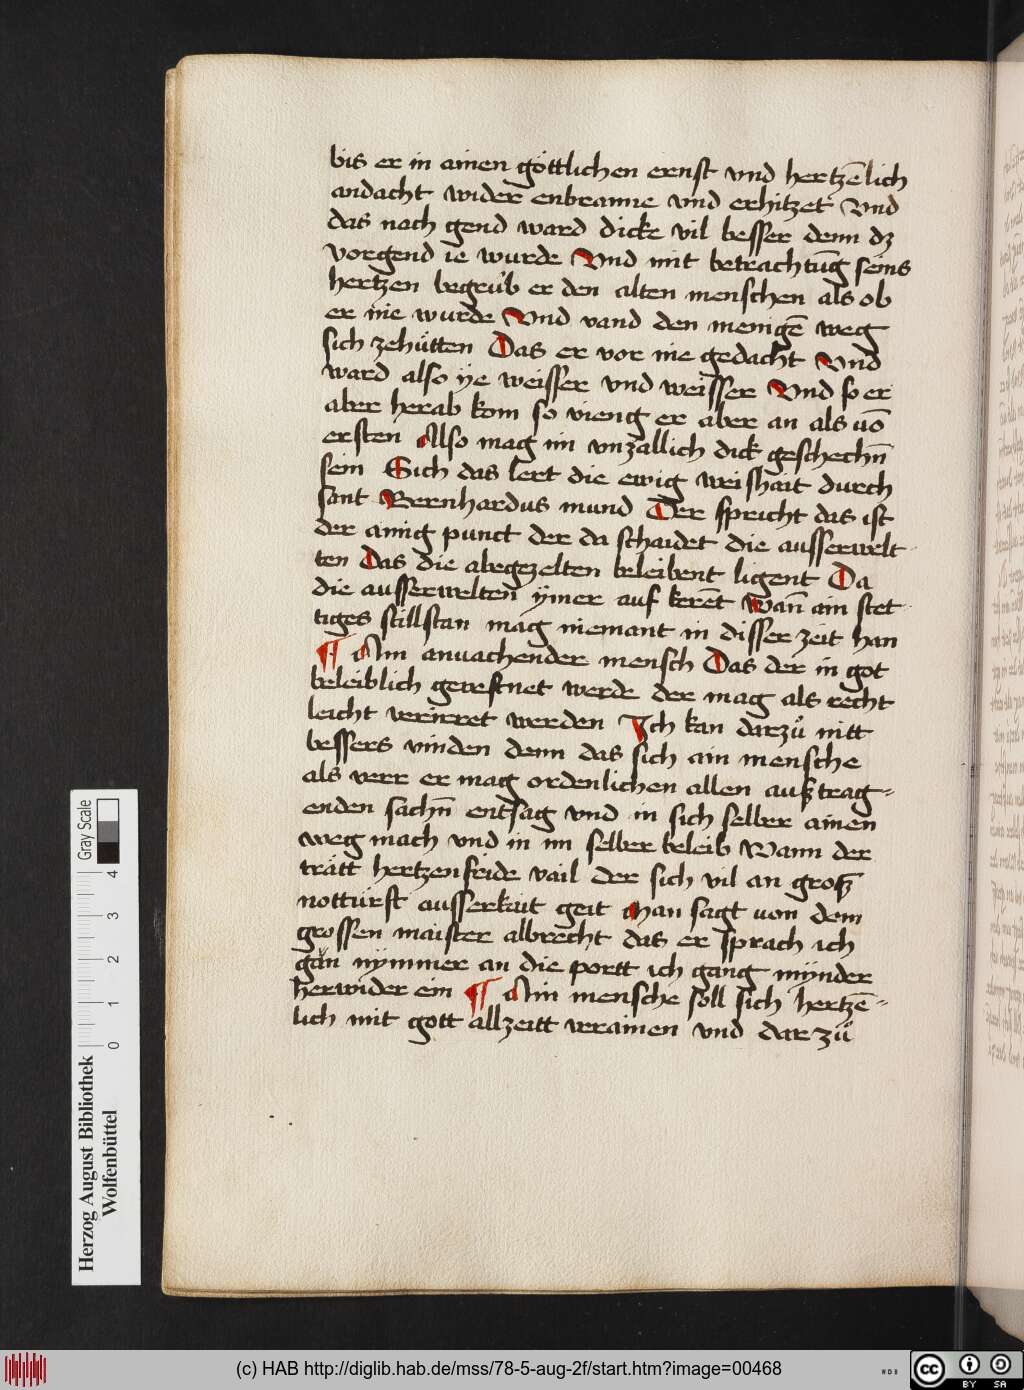 bis er in ainen göttlichen ernst vnd hertzēlich
andacht wider enbranne vnd erhitzet Vnd
das nach gend ward dicke vil besser denn dz
vorgend ie wurde Vnd mit betrachtūg seins
hertzen begrůb er den alten menschen als ob
er nie wurde Vnd vand den menigē weg
sich zehütten Das er vor nie gedacht Vnd
ward also ÿe weisser vnd weisser Vnd so er
aber herab kom so vieng er aber an als vō
ersten Also mag im vnzallich dick geschechn̄
sein Sich das lert die ewig weishait durch
sant Bernhardus mund Der spricht das ist
der ainig punct der da schaidet die ausserwelt
ten Das die abegezelten beleibent ligent Da
die ausserwelten ÿmer auf kerēt Wan̄ ain stet
tiges stillstan mag niemant in disser zeit han
¶ Ain anvachender mensch Das der in got
beleiblich gevestnet werde der mag als recht
leicht verirret werden Ich kan darzů nitt
bessers vinden denn das sich ain mensche
als verr er mag ordenlichen allen ausztrag=
enden sachn̄ entsag vnd in sich selber ainen
weg mach vnd in im selber beleib Wann der
trätt hertzenfride vail der sich vil an grosz
notturft ausserkait geit Man sagt von dem
grossen maister albrecht das er sprach ich
gän nymmer an die portt ich gang mÿnder
herwider ein ¶ Ain mensche soll sich hertzē=
lich mit gott allzeitt verainen vnd darzů
Herzog August Bibliothek
Wolfenbüttel
Gray Scale
0 1 2 3 4
(c) HAB http://diglib.hab.de/mss/78-5-aug-2f/start.htm?image=00468
cc BY SA